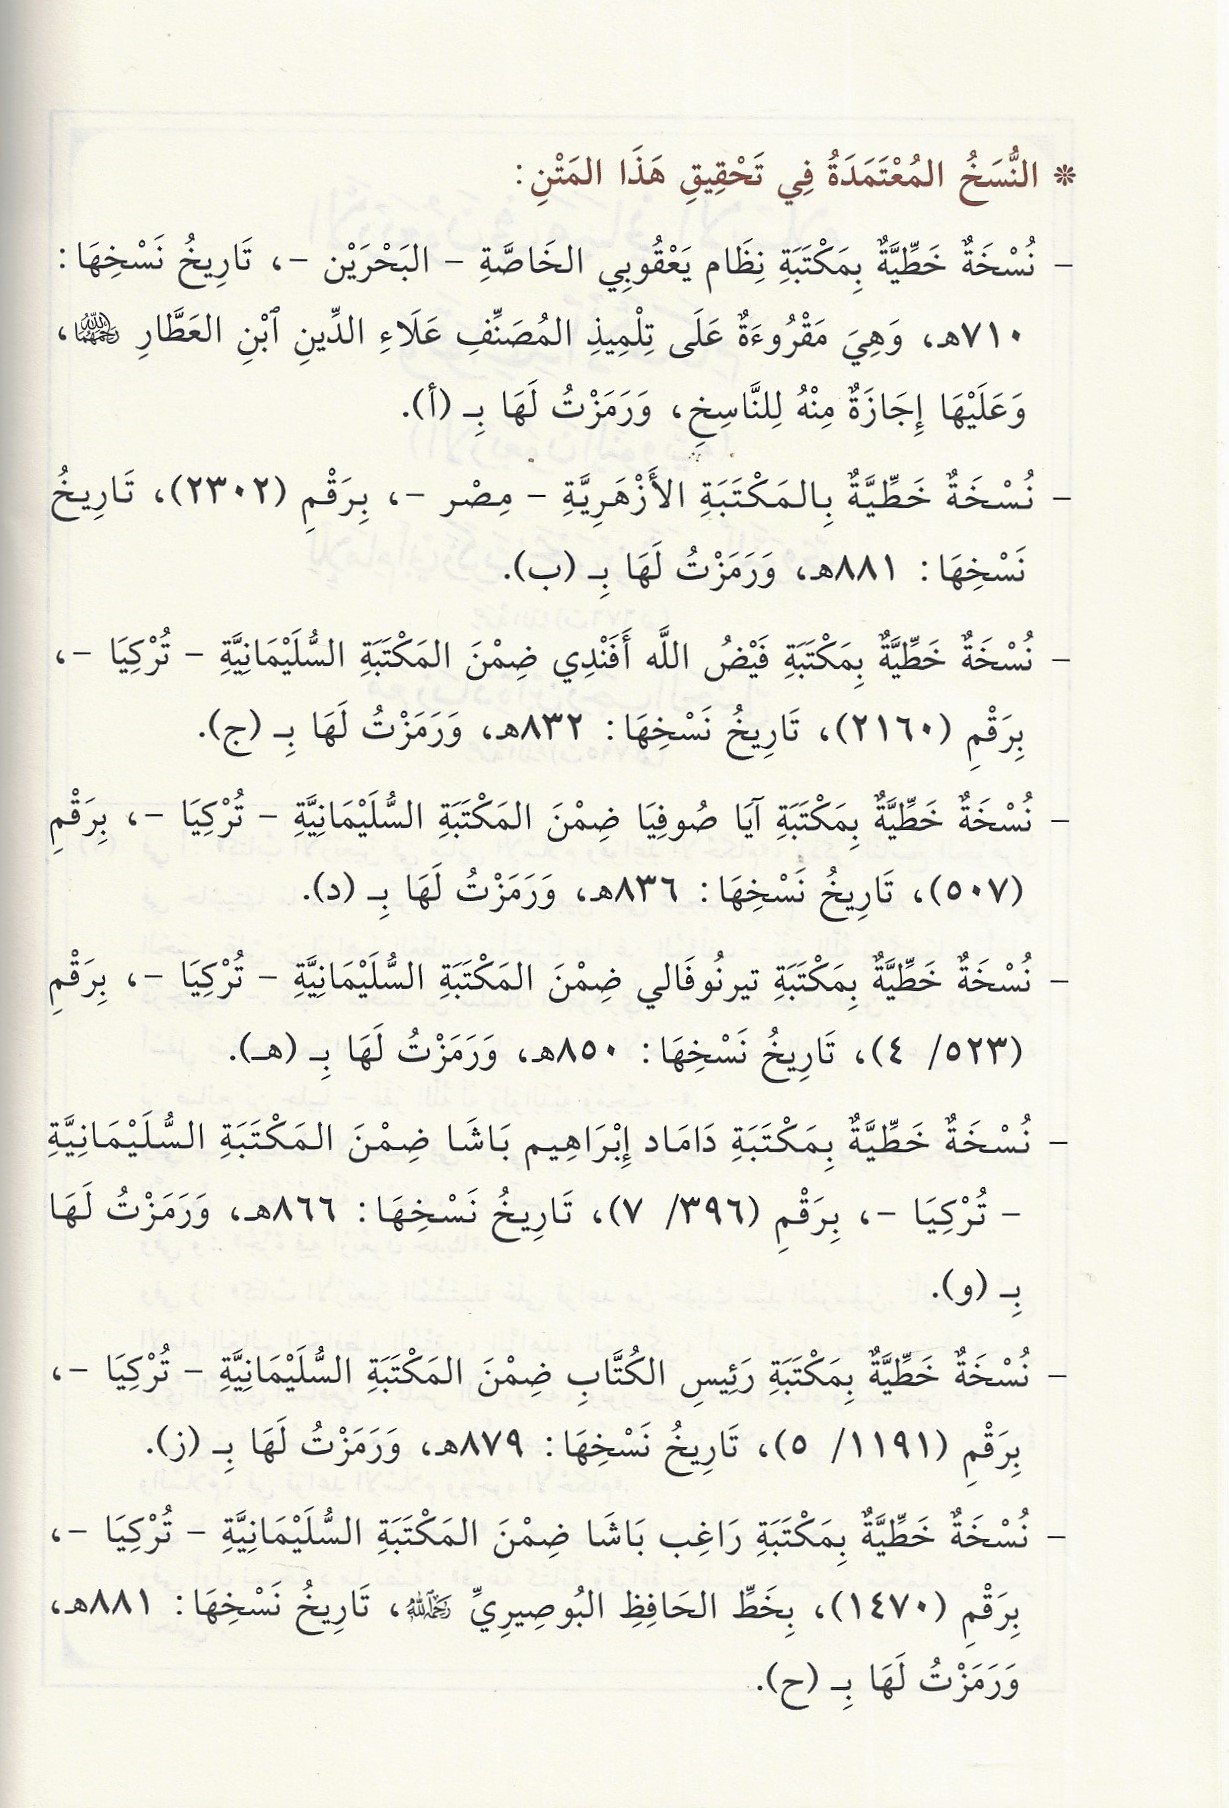 ❊ النُّسَخُ المُعْتَمَدَةُ فِي تَحْقِيقِ هَذَا المَتْنِ:
- نُسْخَةٌ خَطِّيَّةٌ بِمَكْتَبَةِ نِظَام يَعْقُوبِي الخَاصَّةِ - البَحْرَيْن -، تَارِيخُ نَسْخِهَا:
٧١٠هـ، وَهِيَ مَقْرُوءَةٌ عَلَى تِلْمِيذِ المُصَنِّفِ عَلَاءِ الدِّينِ ٱبْنِ العَطَّارِ رَحِمَهُمَا اللَّهُ،
وَعَلَيْهَا إِجَازَةٌ مِنْهُ لِلنَّاسِخِ، وَرَمَزْتُ لَهَا بِـ (أ).
- نُسْخَةٌ خَطِّيَّةٌ بِالمَكْتَبَةِ الأَزْهَرِيَّةِ - مِصْر -، بِرَقْمِ (٢٣٠٢)، تَارِيخُ
نَسْخِهَا: ٨٨١هـ، وَرَمَزْتُ لَهَا بِـ (ب).
- نُسْخَةٌ خَطِّيَّةٌ بِمَكْتَبَةِ فَيْضُ اللَّه أَفَنْدِي ضِمْنَ المَكْتَبَةِ السُّلَيْمَانِيَّةِ - تُرْكِيَا -،
بِرَقْمِ (٢١٦٠)، تَارِيخُ نَسْخِهَا: ٨٣٢هـ، وَرَمَزْتُ لَهَا بِـ (ج).
- نُسْخَةٌ خَطِّيَّةٌ بِمَكْتَبَةِ آيَا صُوفِيَا ضِمْنَ المَكْتَبَةِ السُّلَيْمَانِيَّةِ - تُرْكِيَا -، بِرَقْمِ
(٥٠٧)، تَارِيخُ نَسْخِهَا: ٨٣٦هـ، وَرَمَزْتُ لَهَا بِـ (د).
- نُسْخَةٌ خَطِّيَّةٌ بِمَكْتَبَةِ تيرنُوفَالي ضِمْنَ المَكْتَبَةِ السُّلَيْمَانِيَّةِ - تُرْكِيَا -، بِرَقْمِ
(٥٢٣/ ٤)، تَارِيخُ نَسْخِهَا: ٨٥٠هـ، وَرَمَزْتُ لَهَا بِـ (هـ).
- نُسْخَةٌ خَطِّيَّةٌ بِمَكْتَبَةِ دَامَاد إِبْرَاهِيم بَاشَا ضِمْنَ المَكْتَبَةِ السُّلَيْمَانِيَّةِ
- تُرْكِيَا -، بِرَقْمِ (٣٩٦/ ٧)، تَارِيخُ نَسْخِهَا: ٨٦٦هـ، وَرَمَزْتُ لَهَا
بِـ (و).
- نُسْخَةٌ خَطِّيَّةٌ بِمَكْتَبَةِ رَئِيسِ الكُتَّابِ ضِمْنَ المَكْتَبَةِ السُّلَيْمَانِيَّةِ - تُرْكِيَا -،
بِرَقْمِ (١١٩١/ ٥)، تَارِيخُ نَسْخِهَا: ٨٧٩هـ، وَرَمَزْتُ لَهَا بِـ (ز).
- نُسْخَةٌ خَطِّيَّةٌ بِمَكْتَبَةِ رَاغِب بَاشَا ضِمْنَ المَكْتَبَةِ السُّلَيْمَانِيَّةِ - تُرْكِيَا -،
بِرَقْمِ (١٤٧٠)، بِخَطِّ الحَافِظِ البُوصِيرِيِّ رَحِمَهُ اللَّهُ، تَارِيخُ نَسْخِهَا: ٨٨١هـ،
وَرَمَزْتُ لَهَا بِـ (ح).